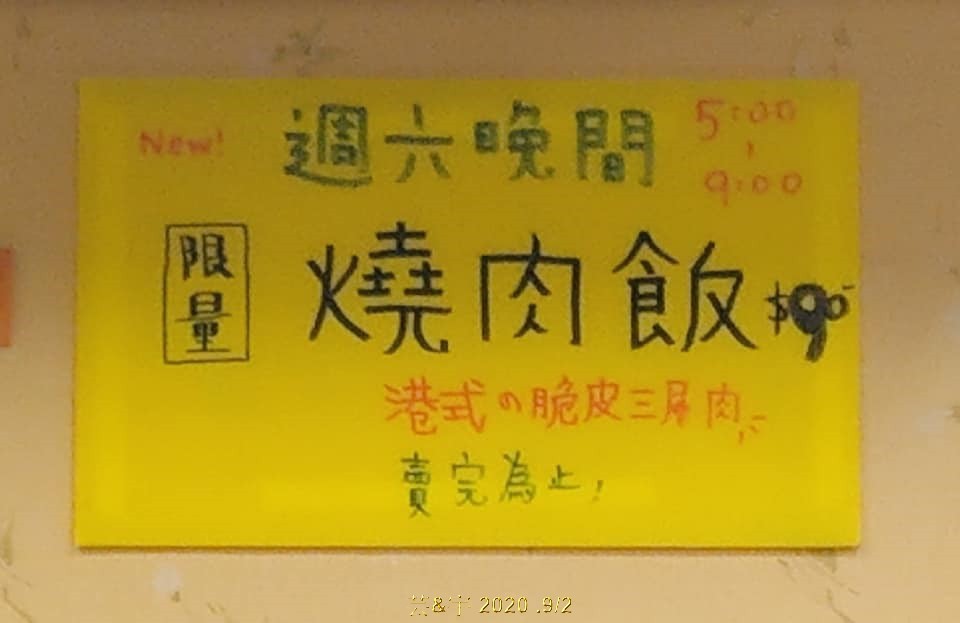 New!
週六晚間
5:00
~
9:00
限量
燒肉飯 $90
港式の脆皮三層肉
賣完為止!
2020 .9/2